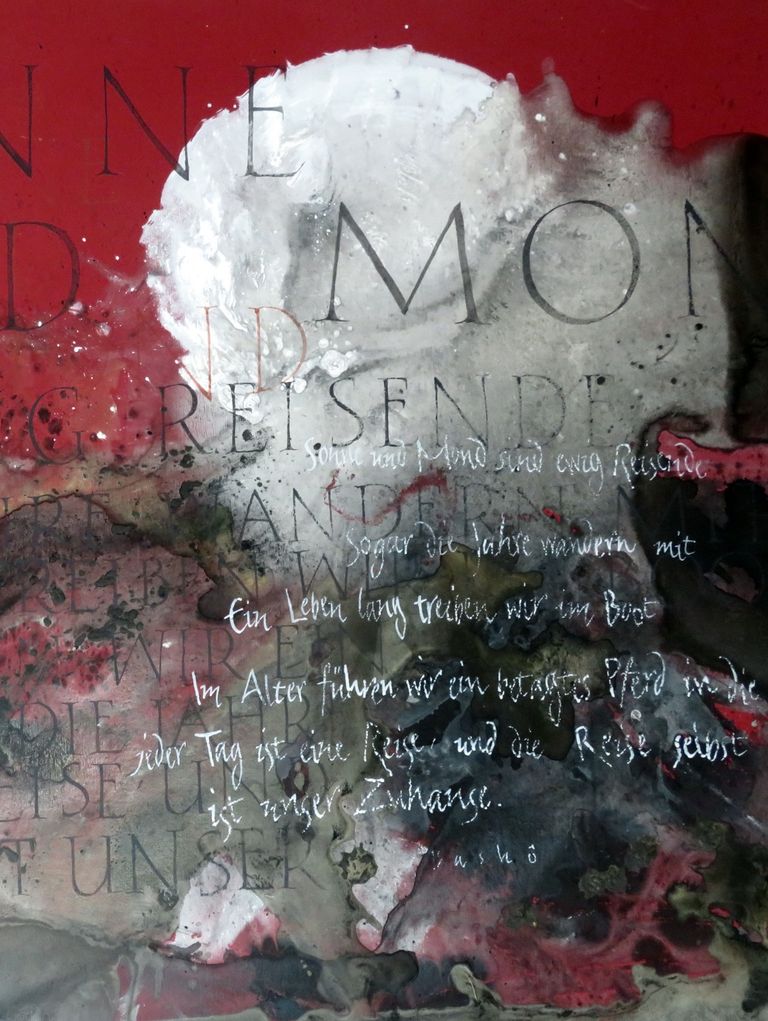 NNE
D MON
ND
G REISENDE
Sonne und Mond sind ewig Reisende
WANDERN MIT
Sogar die Jahre wandern mit
REIBEN WIR
Ein Leben lang treiben wir im Boot
WIR EIN
Im Alter führen wir ein betagtes Pferd in die
DIE JAHR
jeder Tag ist eine Reise, und die Reise selbst
EISE UND
ist unser Zuhange.
T UNSER
Bashô